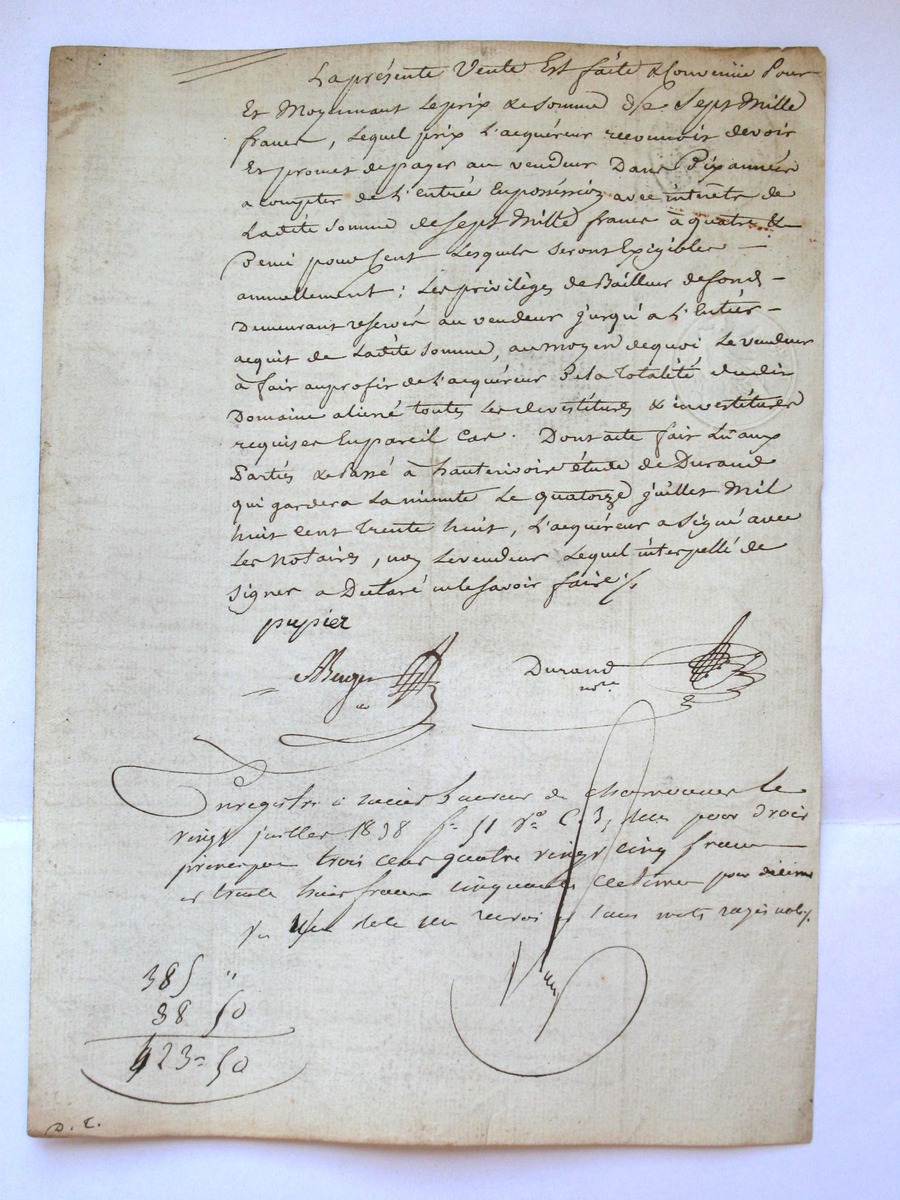 La présente Vente Est faite & Convenüe Pour
Et Moyennant Le prix & Somme de Sept Mille
francs, Lequel prix L'acquéreur reconnoit devoir
Et promet de payer au vendeur Dans Dix années
a compter de L'entrée En possession avec intérêts de
Ladite Somme de Sept Mille francs à quatre &
Demi pour Cent Lesquels Seront Exigibles —
annuellement ; Les privilèges de Bailleur de fond —
Demeurant reservés au vendeur jusqu'a L'Entier —
acquit de Ladite Somme, au moyen de quoi Le vendeur
à fait au profit de L'acquéreur De La Totalité dudit
Domaine aliené toutes Les devestitures & investitures
requises En pareil Cas. Dont acte fait Lu aux
Parties & Passé à hauterivoire étude de Durand
qui gardera La minute Le quatorze juillet Mil
huit Cent Trente huit, L'acquéreur a Signé avec
Les Notaires, non Le vendeur Lequel interpellé de
Signer a Déclaré ne le Savoir faire ./.
pupier
Durand
nore
Enregistré à au bureau de le
vingt juillet 1838 fo 51 Vo C 3, reçu pour droit
trois cent quatre vingt cinq francs
et trente huit francs cinquante centimes pour décime
385 "
38 50
423 = 50
D. E.